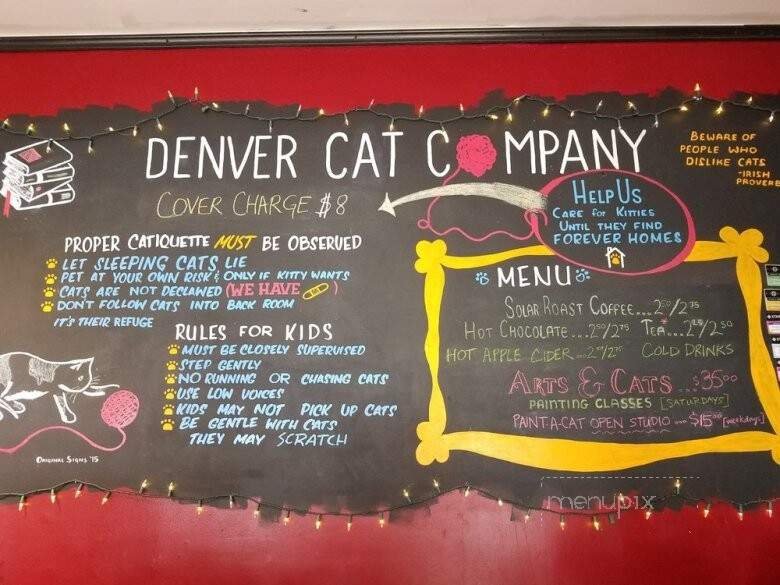 DENVER CAT COMPANY
COVER CHARGE $8
BEWARE OF
PEOPLE WHO
DISLIKE CATS
-IRISH
PROVERB
HELP US
CARE FOR KITTIES
UNTIL THEY FIND
FOREVER HOMES
PROPER CATIQUETTE MUST BE OBSERVED
LET SLEEPING CATS LIE
PET AT YOUR OWN RISK & ONLY IF KITTY WANTS
CATS ARE NOT DECLAWED (WE HAVE )
DON'T FOLLOW CATS INTO BACK ROOM
IT'S THEIR REFUGE
RULES FOR KIDS
MUST BE CLOSELY SUPERVISED
STEP GENTLY
NO RUNNING OR CHASING CATS
USE LOW VOICES
KIDS MAY NOT PICK UP CATS
BE GENTLE WITH CATS
THEY MAY SCRATCH
ORIGINAL SIGNS '15
MENU
SOLAR ROAST COFFEE...250/275
HOT CHOCOLATE...250/275 TEA...2/250
HOT APPLE CIDER...2/2 COLD DRINKS
ARTS & CATS...$3500
PAINTING CLASSES [SATURDAYS]
PAINT-A-CAT OPEN STUDIO...$1500 [weekdays]
menupix